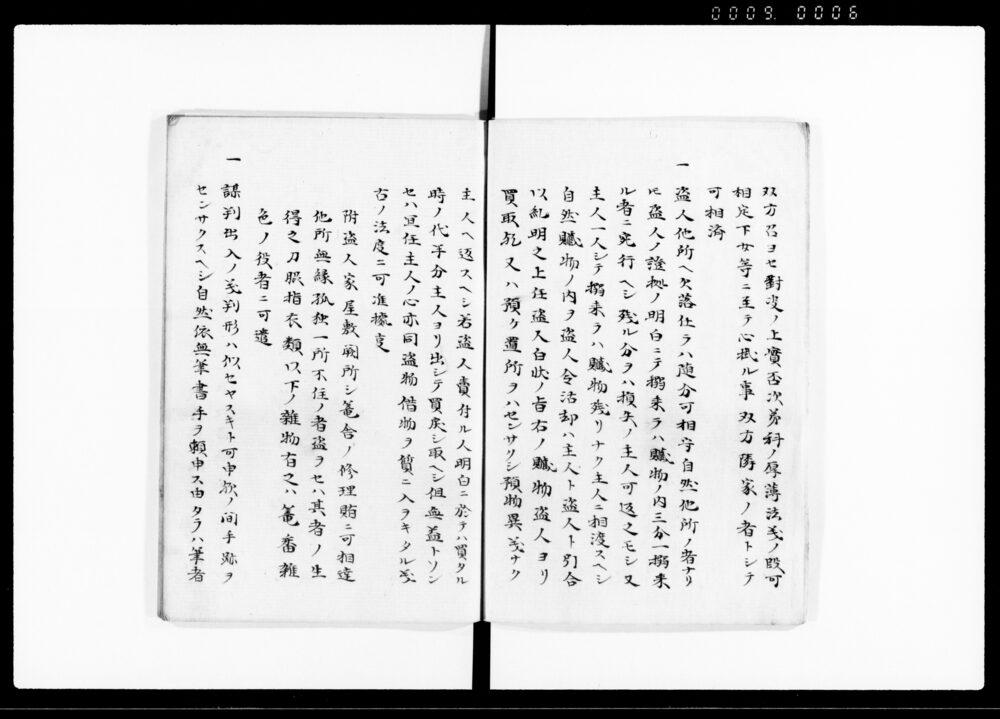 0009. 0006
双方召ヨセ對决ノ上實否次第科ノ厚薄法義ノ殴可
相定下女等ニ至テ心批ル事双方隣家ノ者トシテ
可相済
一
盗人他所ヘ欠落仕ラハ随分可相守自然他所ノ者ナリ
ⵊ盗人ノ證拠ノ明白ニテ搦来ラハ贓物ノ内三分一搦来
ル者ニ宛行ヘシ残ル分ヲハ損失ノ主人可返之モシ又
主人一人シテ搦来ラハ贓物残リナク主人ニ相渡スヘシ
自然贓物ノ内ヲ盗人令沽却ハ主人ト盗人ト引合
以糺明之上任盗人白状ノ旨右ノ贓物盗人ヨリ
買取又ハ預ケ置所ヲハセンサクシ預物異義ナク
主人ヘ返スヘシ若盗人賣付ル人明白ニ於テハ買タル
時ノ代半分主人ヨリ出シテ買戻シ取ヘシ但無益トソン
セハ宜任主人ノ心亦同盗物借物ヲ質ニ入ヲキタル義
右ノ法度ニ可准據叓
附盗人家屋敷闕所シ篭舎ノ修理賄ニ可相達
他所無縁孤独一所不住ノ者盗ヲセハ其者ノ生
得之刀脇指衣類以下ノ雑物有之ハ篭番雑
色ノ役者ニ可遣
一
謀判出入ノ義判形ハ似セヤスキト可申欤ノ間手跡ヲ
センサクスヘシ自然依無筆書手ヲ頼申ス由タラハ筆者